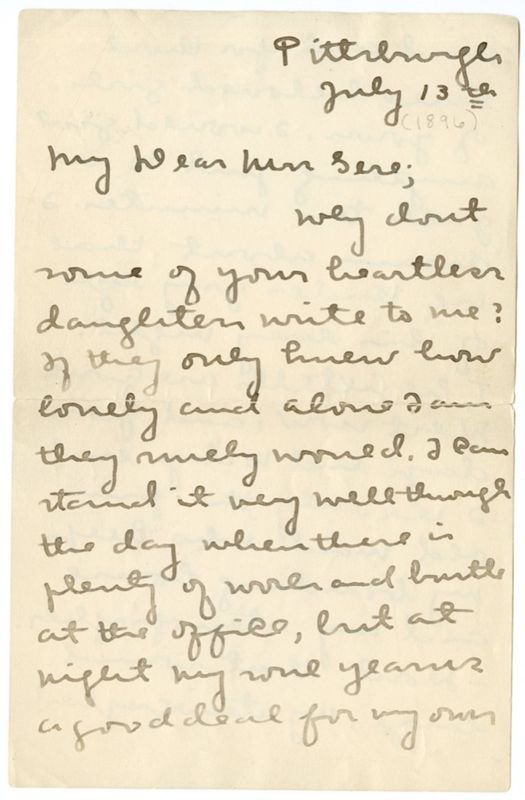 Pittsburgh
July 13th
(1896)
My Dear Mrs Gere;
Why dont
some of your heartless
daughters write to me?
If they only knew how
lonely and alone I am
they surely would. I can
stand it very well through
the day when there is
plenty of work and bustle
at the office, but at
night my soul yearns
a good deal for my own